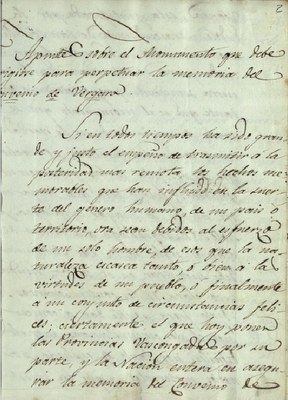 2
Apuntes sobre el Monumento que debe
erigirse para perpetuar la memoria del
Convenio de Vergara
Si en todos tiempos ha sido gran-
de y justo el empeño de trasmitir á la
posteridad mas remota, los hechos me-
morables que han influido en la suer-
te del género humano, de un pais ó
territorio, ora sean debidos al esfuerzo
de un solo hombre, de esos que la na-
turaleza escasea tanto, ó bien á las
virtudes de un pueblo, ó finalmente
á un conjunto de circunstancias feli-
ces; ciertamente el que hoy ponen
las Provincias Vascongadas por su
parte, y la Nacion entera en asegu-
rar la memoria del Convenio de